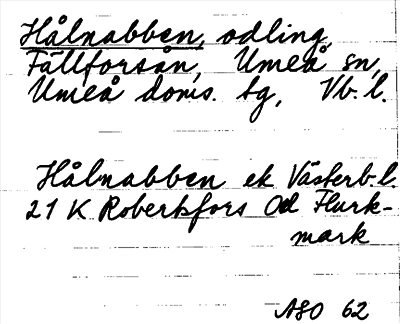 Hålnabben, odling
Fällforsån, Umeå sn,
Umeå doms. tg, Vb. l.
Hålnabben ek Västerb. l.
21 K Robertsfors Od Flurk-
mark
ASO 62